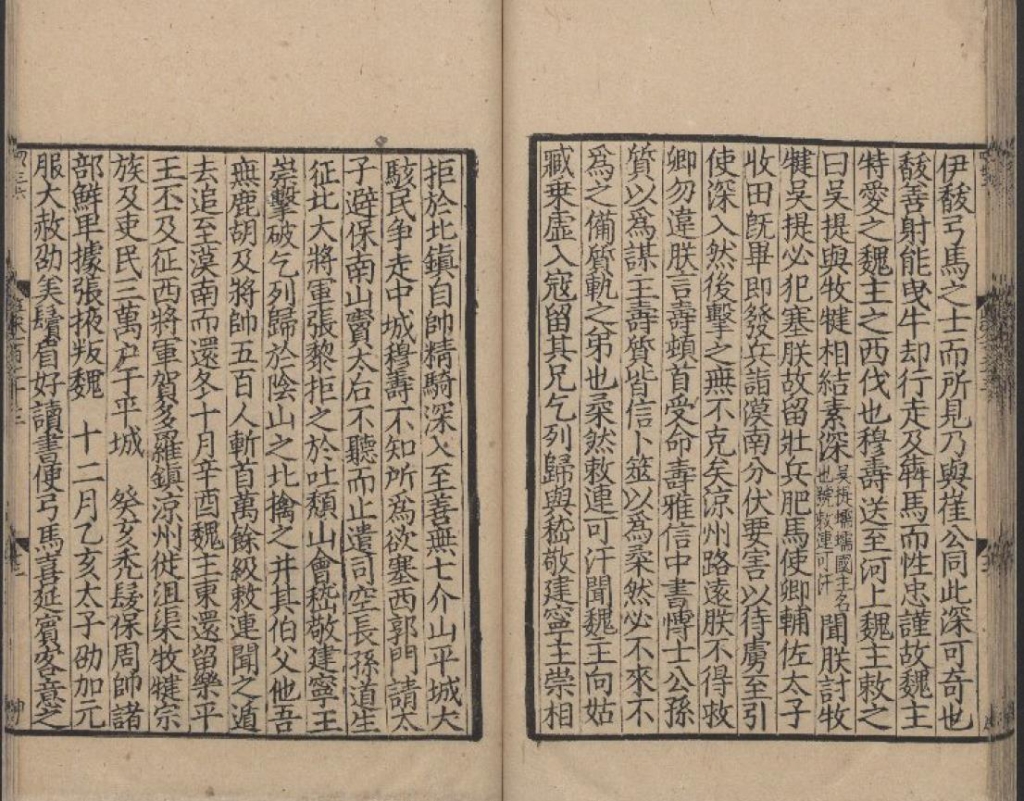 伊馛弓馬之士而所見乃與崔公同此深可奇也
馛善射能曳牛却行走及犇馬而性忠謹故魏主
特愛之魏主之西伐也穆壽送至河上魏主敕之
曰吳提與牧犍相結素深吳提蠕蠕國主名也號敕連可汗聞朕討牧
犍吳提必犯塞朕故留壯兵肥馬使卿輔佐太子
收田旣畢即發兵詣漠南分伏要害以待虜至引
使深入然後擊之無不克矣涼州路遠朕不得救
卿勿違朕言壽頓首受命壽雅信中書博士公孫
質以爲謀主壽質皆信卜筮以爲柔然必不來不
爲之備質軌之弟也柔然敕連可汗聞魏主向姑
臧乗虛入寇留其兄乞列歸與嵇敬建寧王崇相
拒於北鎮自帥精騎深入至善無七介山平城大
駭民爭走中城穆壽不知所爲欲塞西郭門請太
子避保南山竇太后不聽而止遣司空長孫道生
征北大將軍張黎拒之於吐頹山會嵇敬建寧王
崇擊破乞列歸於陰山之北擒之并其伯父他吾
無鹿胡及將帥五百人斬首萬餘級敕連聞之遁
去追至漠南而還冬十月辛酉魏主東還留樂平
王丕及征西將軍賀多羅鎮涼州徙沮渠牧犍宗
族及吏民三萬户于平城　癸亥禿髮保周帥諸
部鮮卑據張掖叛魏　十二月乙亥太子劭加元
服大赦劭美鬚眉好讀書便弓馬喜延賓客意之